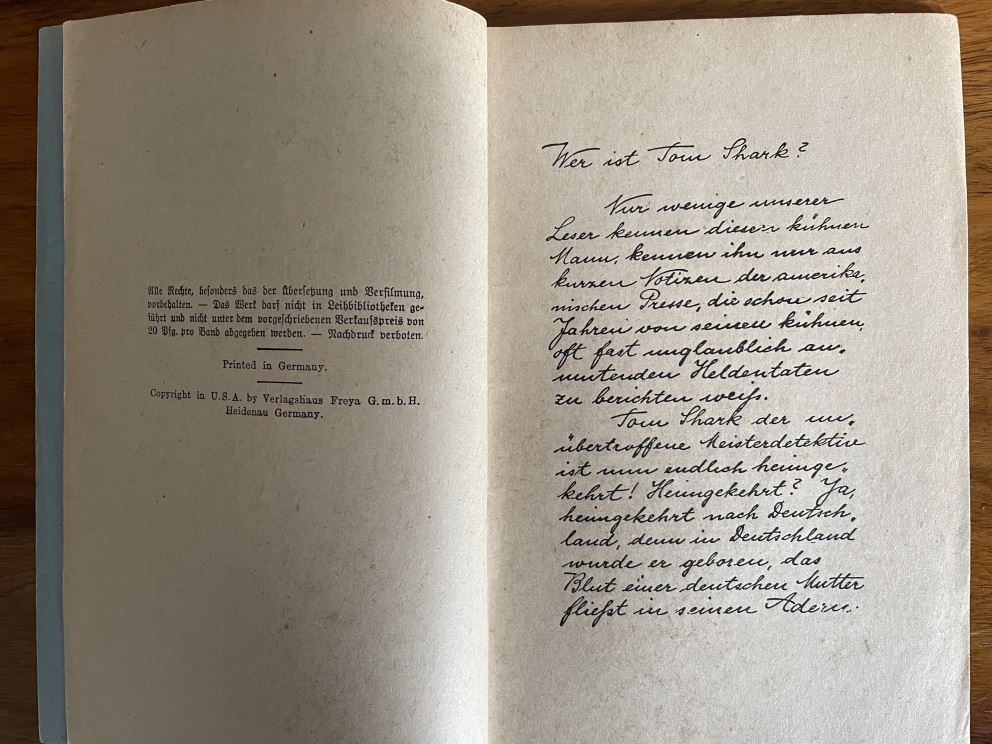 Alle Rechte, besonders das der Übersetzung und Verfilmung,
vorbehalten. — Das Werk darf nicht in Leihbibliotheken ge-
führt und nicht unter dem vorgeschriebenen Verkaufspreis von
20 Pfg. pro Band abgegeben werden. — Nachdruck verboten.
Printed in Germany.
Copyright in U.S.A. by Verlagshaus Freya G.m.b.H.
Heidenau Germany.
Wer ist Tom Shark?
Nur wenige unserer
Leser kennen diesen kühnen
Mann, kennen ihn nur aus
kurzen Notizen der amerika-
nischen Presse, die schon seit
Jahren von seinen kühnen,
oft fast unglaublich an-
mutenden Heldentaten
zu berichten weiß.
Tom Shark der un-
übertroffene Meisterdetektiv
ist nun endlich heimge-
kehrt! Heimgekehrt? Ja,
heimgekehrt nach Deutsch-
land, denn in Deutschland
wurde er geboren, das
Blut einer deutschen Mutter
fließt in seinen Adern.